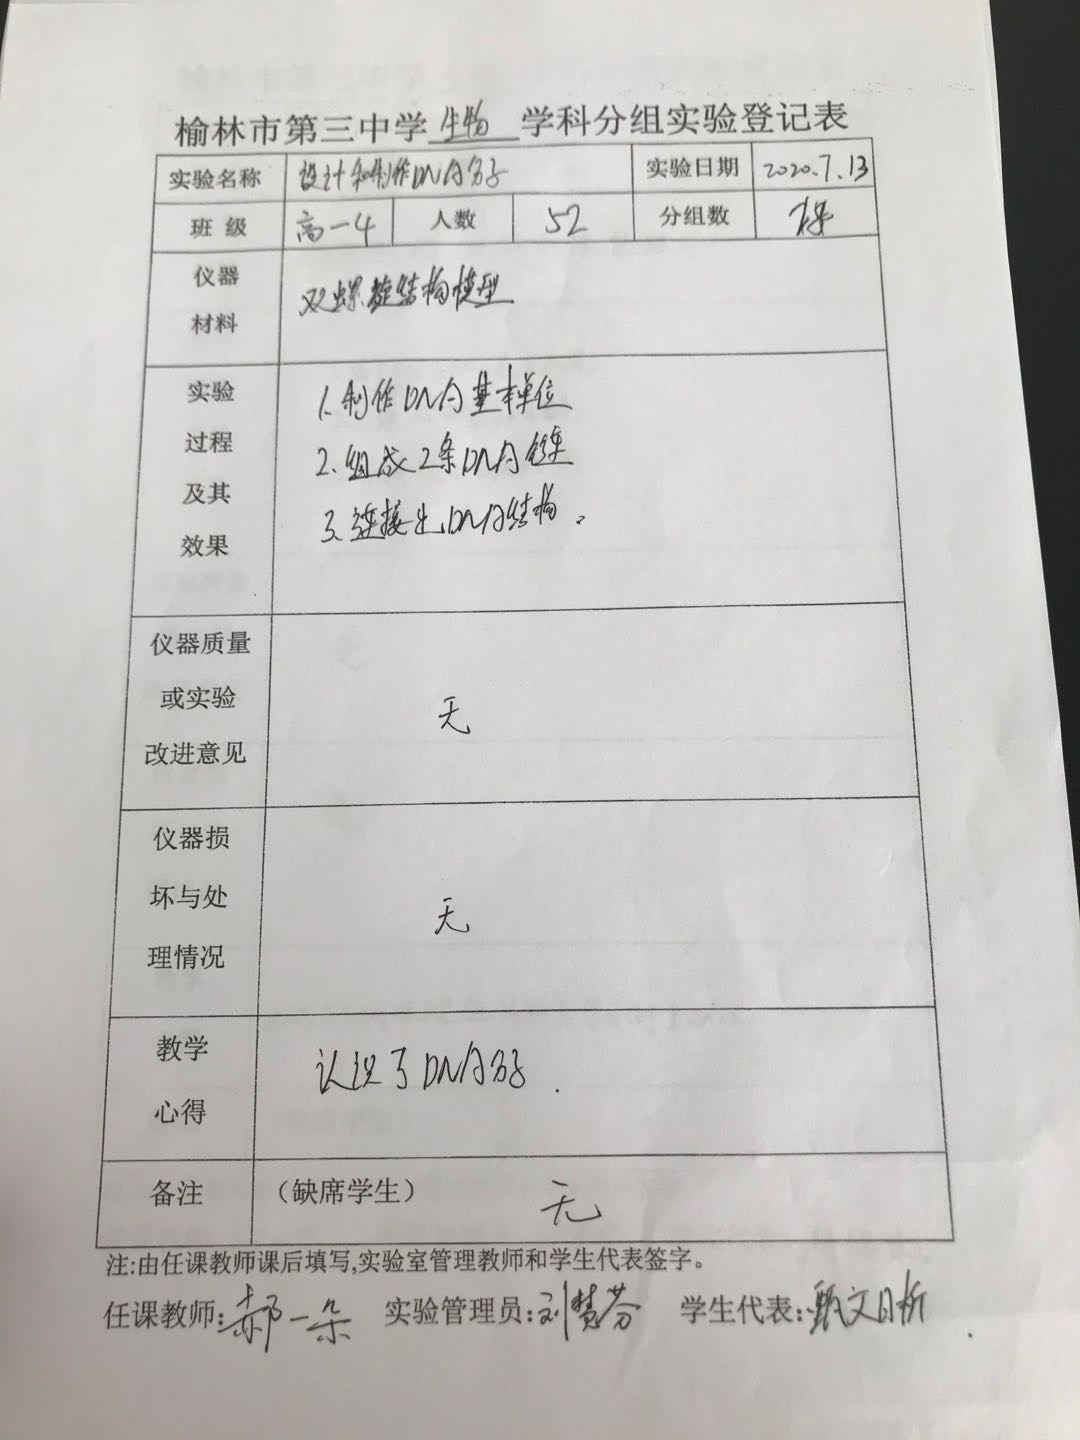 榆林市第三中学 生物 学科分组实验登记表
实验名称 设计和制作DNA分子 实验日期 2020.7.13
班 级 高一4 人数 52 分组数
仪器
材料
双螺旋结构模型
实验
过程
及其
效果
1.制作DNA基本单位
2.组成2条DNA链
3.连接出DNA结构。
仪器质量
或实验
改进意见
无
仪器损
坏与处
理情况
无
教学
心得
认识了DNA分子.
备注 (缺席学生) 无
注:由任课教师课后填写,实验室管理教师和学生代表签字。
任课教师:郝一朵 实验管理员:刘慧芬 学生代表:甄文